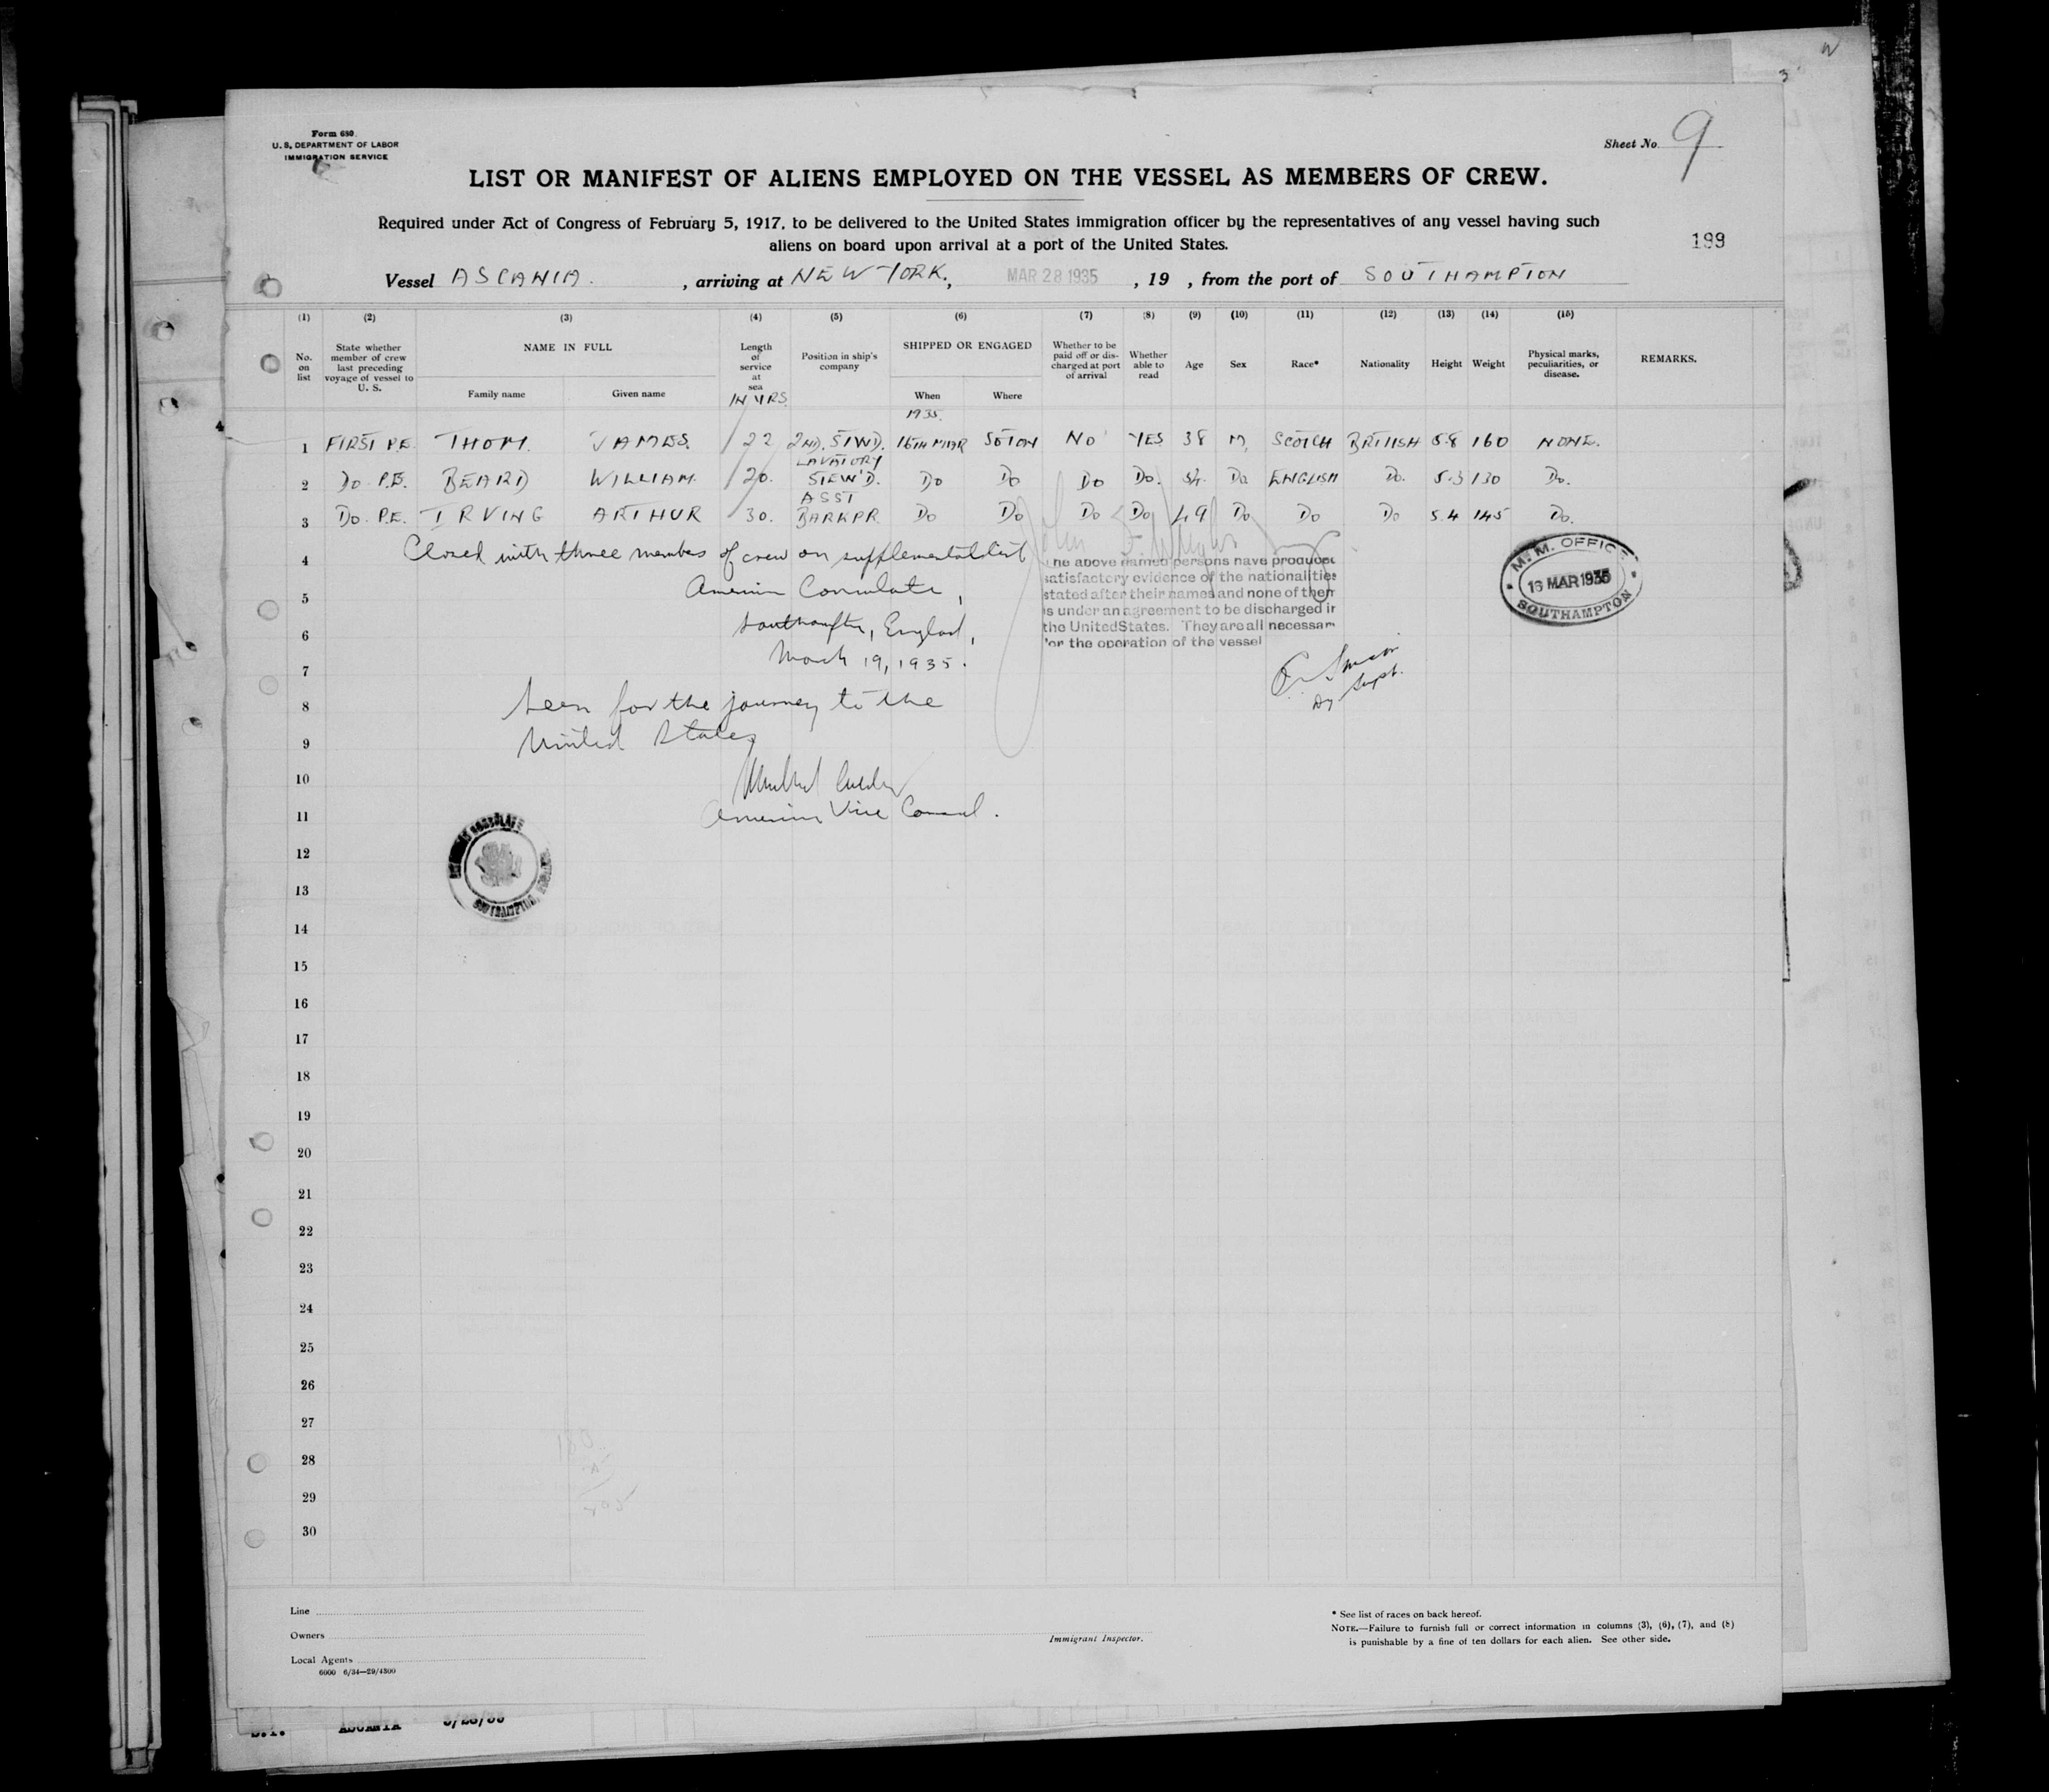 Form 680
U. S. DEPARTMENT OF LABOR
IMMIGRATION SERVICE
Sheet No. 9
LIST OR MANIFEST OF ALIENS EMPLOYED ON THE VESSEL AS MEMBERS OF CREW.
Required under Act of Congress of February 5, 1917, to be delivered to the United States immigration officer by the representatives of any vessel having such
aliens on board upon arrival at a port of the United States.
199
Vessel ASCANIA. , arriving at NEW YORK, MAR 28 1935 , 19 , from the port of SOUTHAMPTON
(1) (2) (3) (4) (5) (6) (7) (8) (9) (10) (11) (12) (13) (14) (15)
No. on list
State whether member of crew last preceding voyage of vessel to U. S.
NAME IN FULL
Family name
Given name
Length of service at sea
IN YRS.
Position in ship's company
SHIPPED OR ENGAGED
When
Where
Whether to be paid off or discharged at port of arrival
Whether able to read
Age
Sex
Race*
Nationality
Height
Weight
Physical marks, peculiarities, or disease.
REMARKS.
1935.
1 FIRST P.E. THOM. JAMES. 22 2ND. STWD. 16TH MAR SOTON NO YES 38 M, SCOTCH BRITISH 5.8 160 NONE.
2 DO P.E. BEARD WILLIAM. 20. LAVATORY STEW'D. DO DO DO DO. 54. DO ENGLISH DO. 5.3 130 DO.
3 DO. P.E. IRVING ARTHUR 30. ASST BARKPR. DO DO DO DO 49 DO DO DO 5.4 145 DO.
4 Closed with three members of crew on supplemental list
5 American Consulate,
6 Southampton, England,
7 March 19, 1935.
The above named persons have produced
satisfactory evidence of the nationalities
stated after their names and none of them
is under an agreement to be discharged in
the United States. They are all necessary
for the operation of the vessel
M. M. OFFICE
16 MAR 1935
SOUTHAMPTON
Dy Supt.
8 Seen for the journey to the
9 United States
10
11 American Vice Consul.
AMERICAN CONSULATE
SOUTHAMPTON, ENGLAND.
12
13
14
15
16
17
18
19
20
21
22
23
24
25
26
27
28
29
30
Line
Owners
Local Agents
6000 6/34—29/4800
Immigrant Inspector.
* See list of races on back hereof.
NOTE.—Failure to furnish full or correct information in columns (3), (6), (7), and (8)
is punishable by a fine of ten dollars for each alien. See other side.